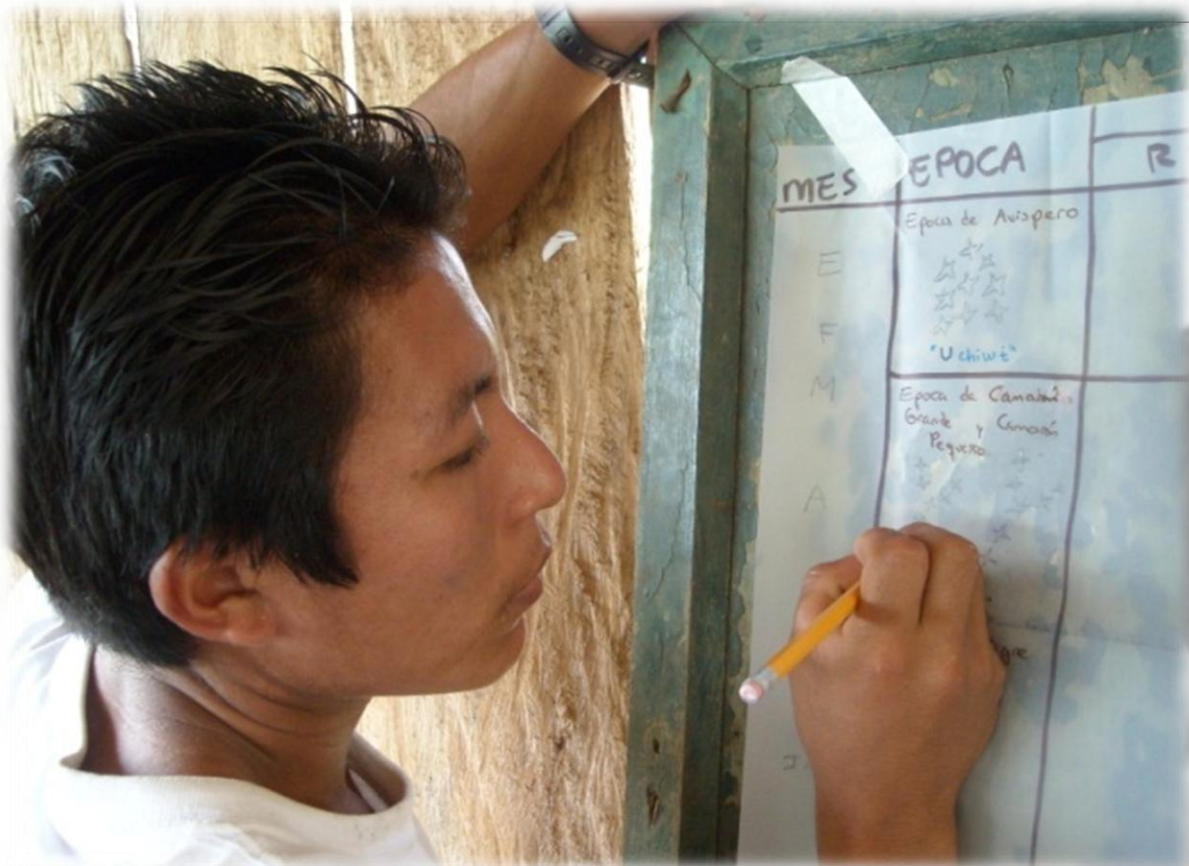 MES EPOCA R
Epoca de Avispero
E
F
"Uchiwt"
M
Epoca de Camarón
Grande y Camarón
Pequeño
A